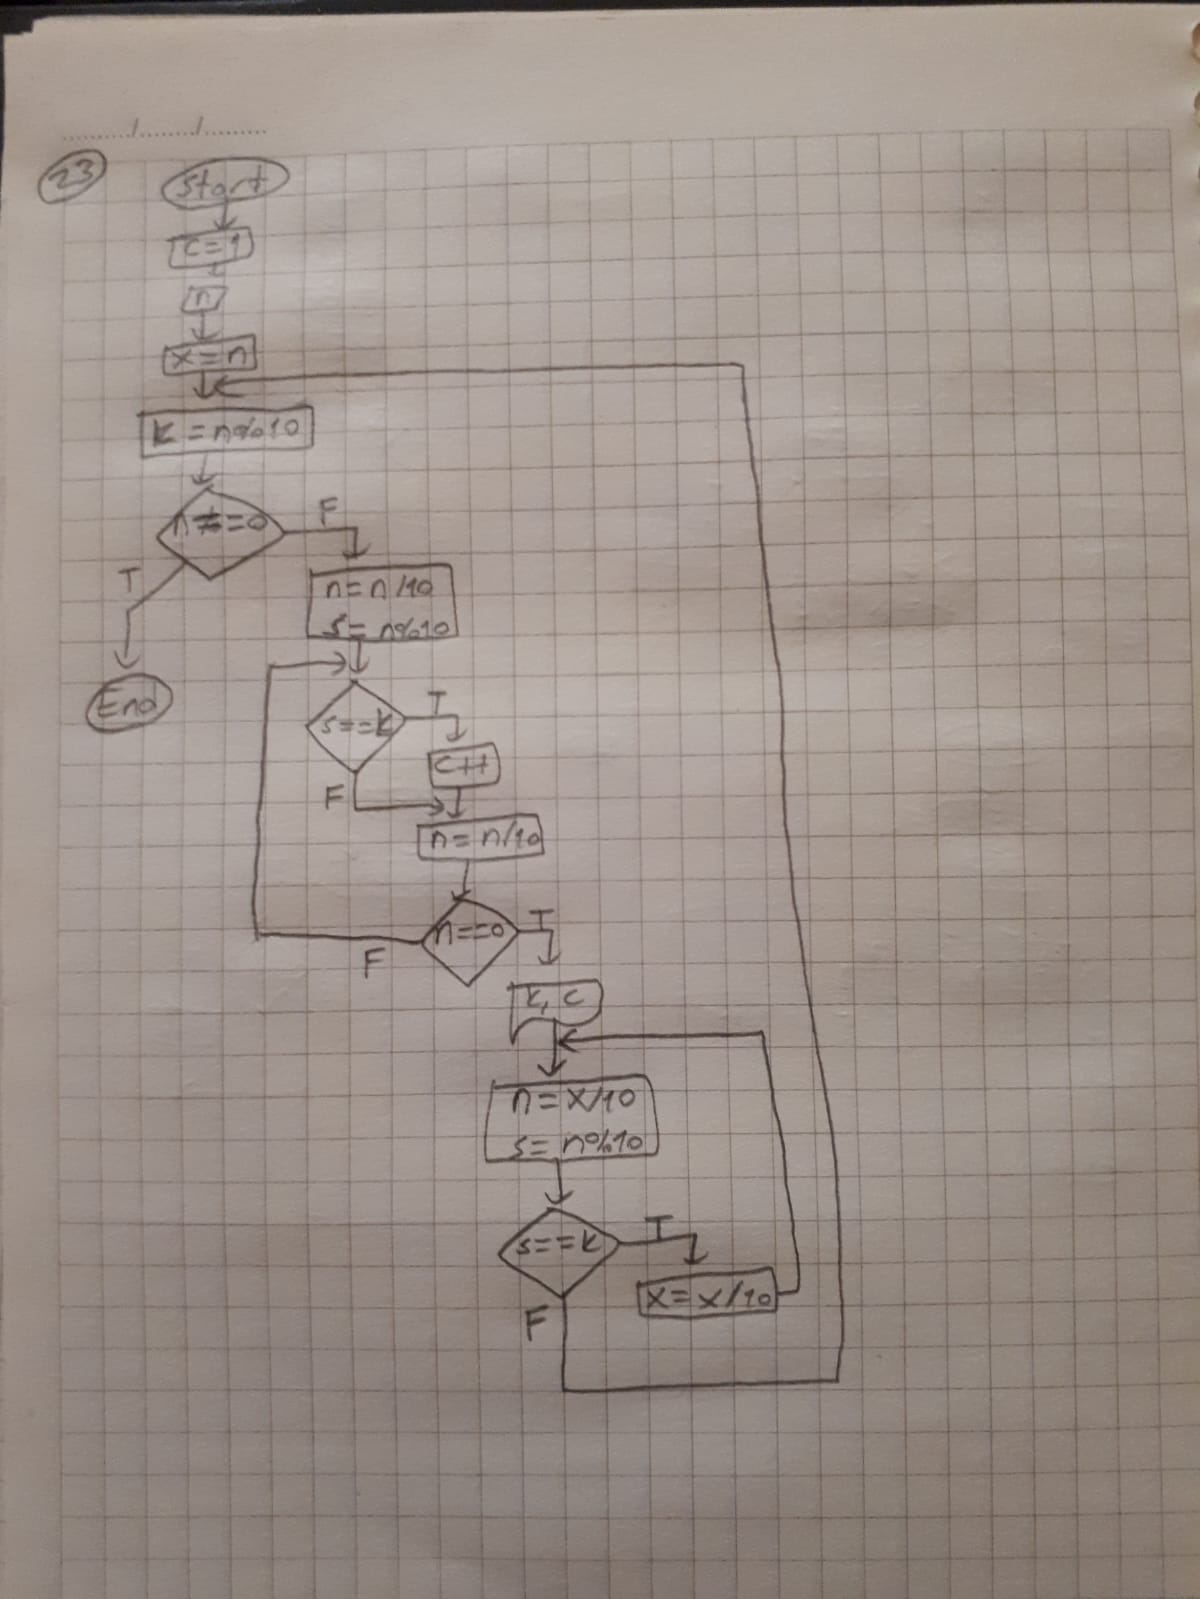 ......../......../.........
23
Start
c=1
n
x=n
k=n%10
n==0
F
T
n=n/10
s=n%10
End
s==k
T
c++
F
n=n/10
n==0
T
F
k, c
n=x/10
s=n%10
s==k
T
x=x/10
F